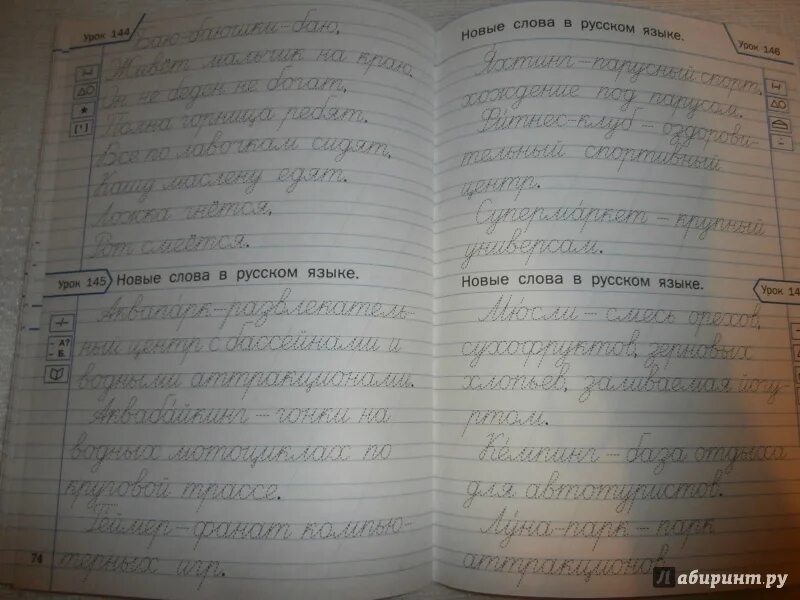 Урок 144
Баю-баюшки-баю,
Живёт мальчик на краю.
Он не беден не богат,
Полна горница ребят.
Все по лавочкам сидят,
Кашу маслену едят.
Ложка гнётся,
Рот смеётся.
Урок 145
Новые слова в русском языке.
- А?
- Б.
Аквапа́рк – развлекатель-
ный центр с бассейнами и
водными аттракционами.
Акваба́йкинг – гонки на
водных мотоциклах по
круговой трассе.
Ге́ймер – фанат компью-
терных игр.
74
Новые слова в русском языке.
Урок 146
Я́хтинг – парусный спорт,
хождение под парусом.
Фи́тнес-клуб – оздорови-
тельный спортивный
центр.
Суперма́ркет – крупный
универсам.
Новые слова в русском языке.
Урок 14
Мю́сли – смесь орехов,
сухофруктов, зерновых
хлопьев, заливаемая йогу-
ртом.
Ке́мпинг – база отдыха
для автотуристов.
Лу́на-парк – парк
аттракционов.
Лабиринт.ру